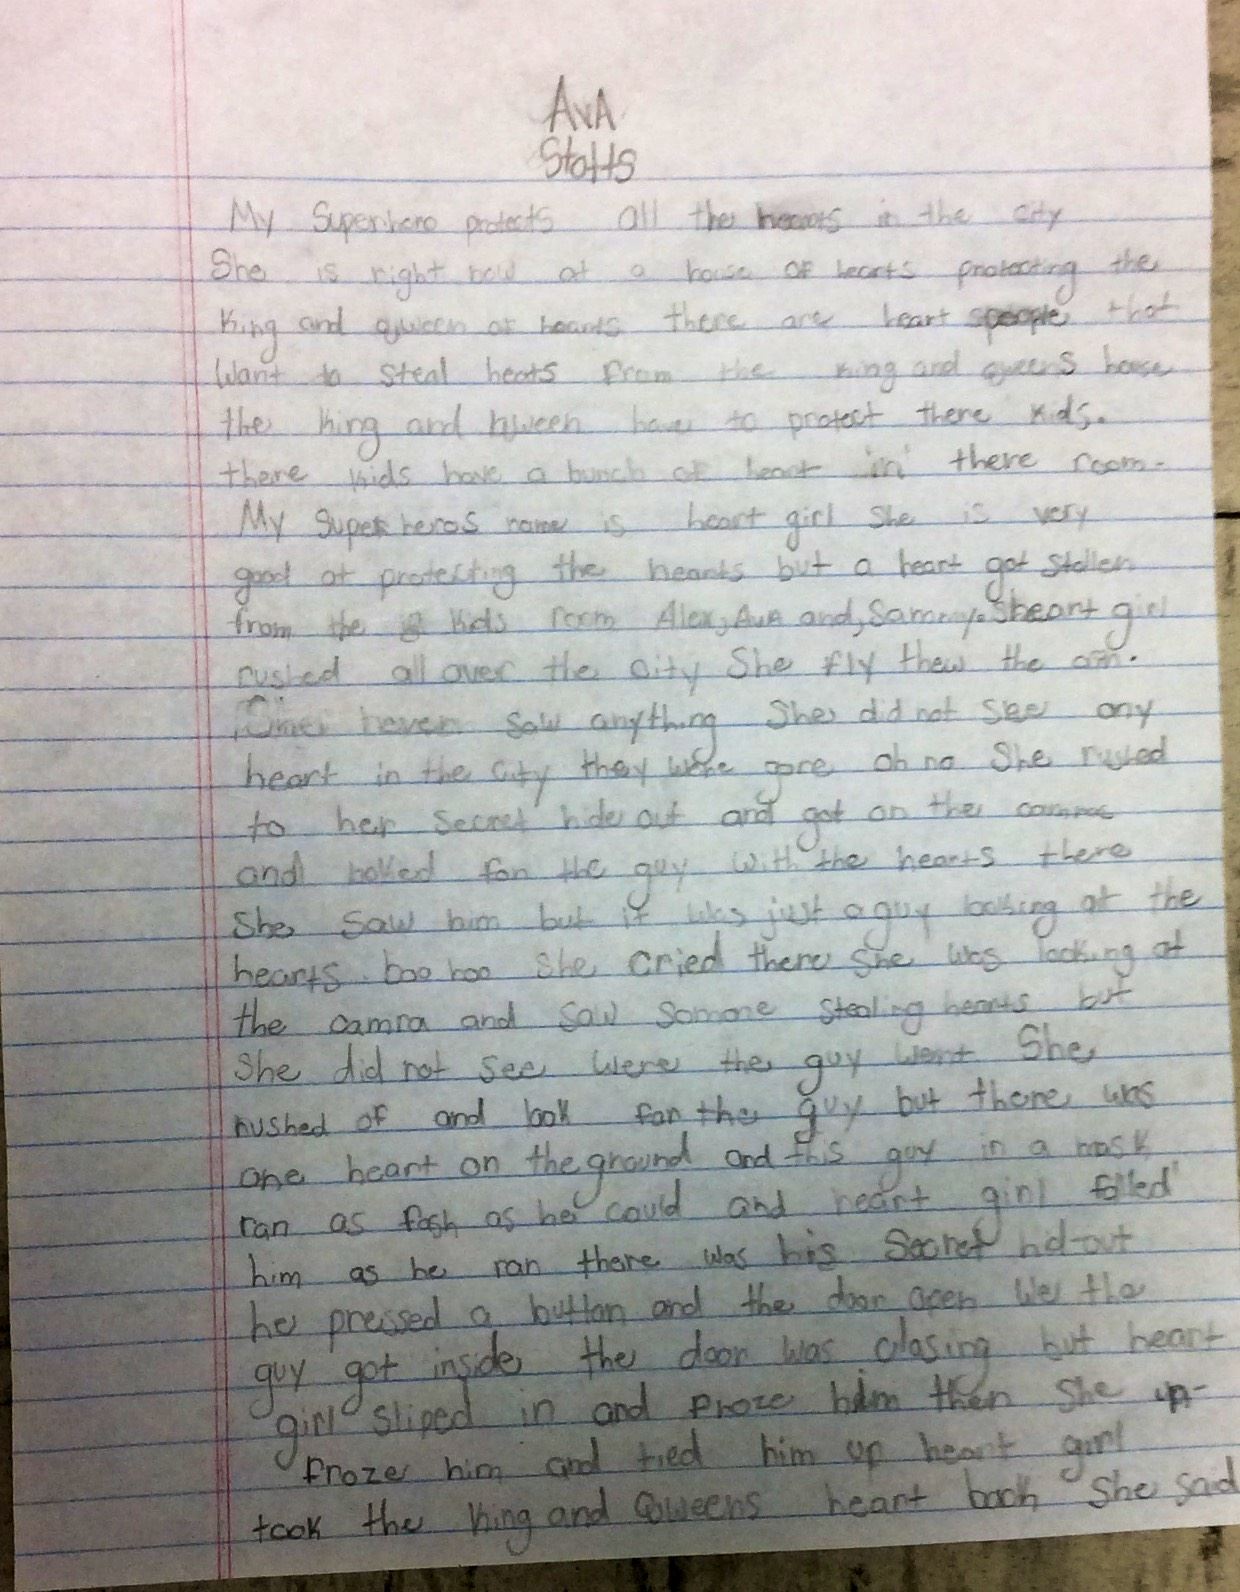 AvA
Stotts
My Superhero protects all the hearts in the city
She is right now at a house of hearts protecting the
King and qween of hearts there are heart people that
want to steal hearts from the king and queens house
the king and qween have to protect there kids.
there kids have a bunch of heart in there room.
My Superheros name is heart girl she is very
good at protecting the hearts but a heart got stollen
from the kids room Alex, Ava and, Sammy. heart girl
rushed all over the city She fly thew the
never saw anything She did not see any
heart in the city they were gone oh no She rushed
to her secret hide out and got on the
and looked for the guy with the hearts there
She saw him but it was just a guy looking at the
hearts boo hoo She cried there she was looking at
the camra and saw somone stealing hearts but
She did not see were the guy went She
rushed of and look for the guy but there was
one heart on the ground and this guy in a mask
ran as fash as he could and heart girl folled
him as he ran there was his Secret hid-out
he pressed a button and the door open the
guy got inside the door was closing but heart
girl sliped in and froze him then She un-
froze him and tied him up heart girl
took the King and Qweens heart back She said